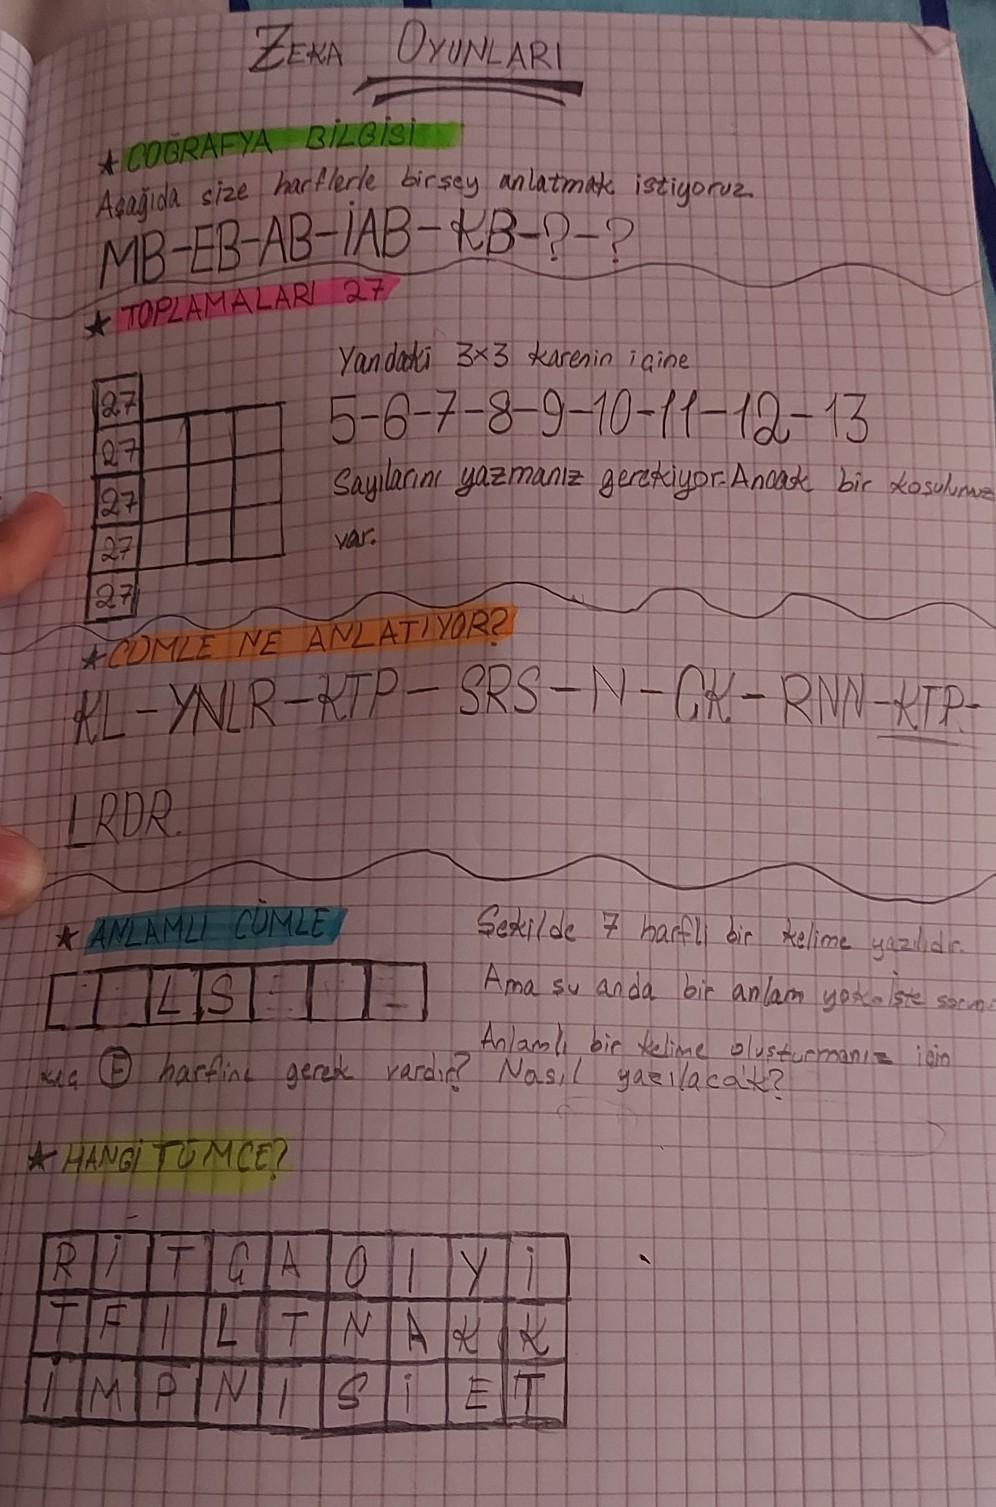 ZEKA OYUNLARI
★ COĞRAFYA BİLGİSİ
Aşağıda size harflerle birşey anlatmak istiyoruz.
MB-EB-AB-İAB-KB-?-?
★ TOPLAMALARI 27
Yandaki 3x3 karenin içine
27
5-6-7-8-9-10-11-12-13
27
27
Sayılarını yazmanız gerekiyor. Ancak bir koşulumuz
27
var.
27
★ CÜMLE NE ANLATIYOR?
KL-YNLR-KTP-SRS-N-ÇK-RNN-KTP-
LRDR.
★ ANLAMLI CÜMLE
Şekilde 7 harfli bir kelime yazılıdır.
L S
Ama şu anda bir anlam yok. İşte
Anlamlı bir kelime oluşturmanız için
kaç E harfine gerek vardır? Nasıl yazılacak?
★ HANGİ TÜMCE?
R İ T G A O I Y İ
T F I L T N A K K
I M P N I S İ E T